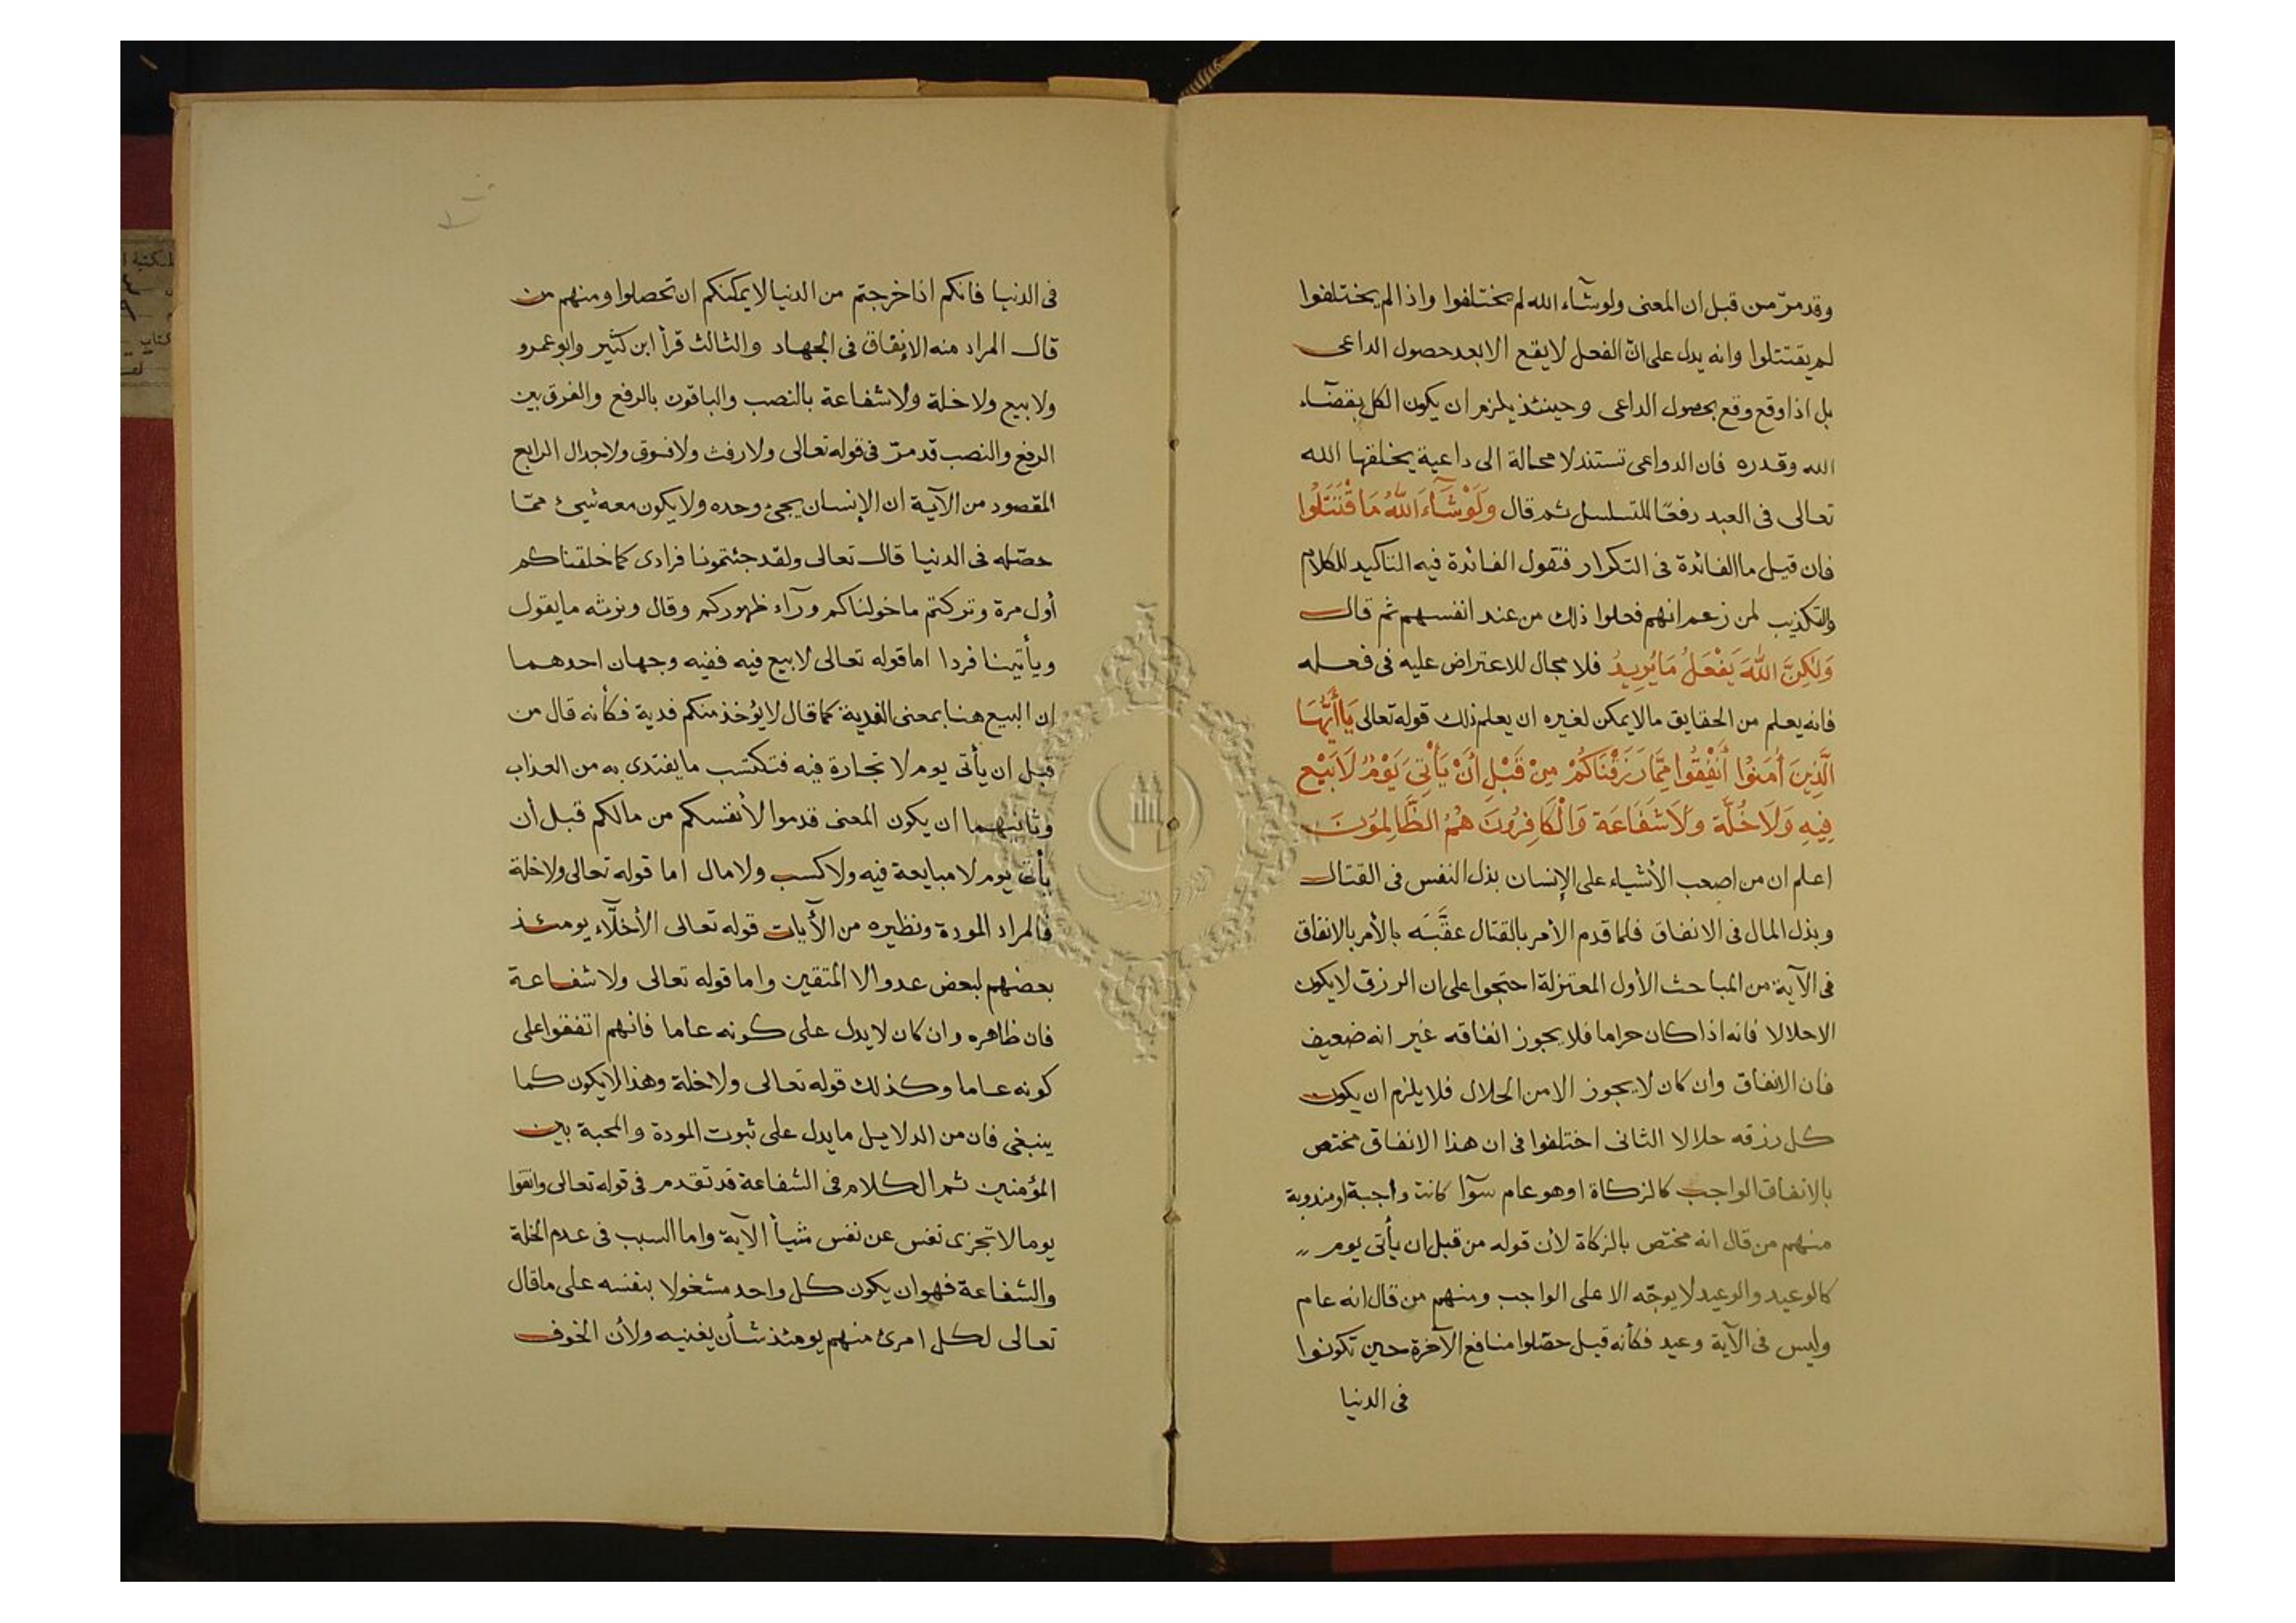 وقد مرّ من قبل ان المعنى ولو شآء الله لم يختلفوا واذا لم يختلفوا
لم يقتتلوا وانه يدل على انّ الفعل لا يقع الا بعد حصول الداعى
بل اذا وقع وقع بحصول الداعى وحينئذ يلزم ان يكون الكل بقضآء
الله وقدره فان الدواعى تستند لا محالة الى داعية يخلقها الله
تعالى فى العبد رفعًا للتسلسل ثم قال وَلَوْ شَآءَ اللَّهُ مَا قْتَتَلُوا
فان قيل ما الفائدة فى التكرار فنقول الفائدة فيه التاكيد للكلام
والتكذيب لمن زعم انهم فعلوا ذلك من عند انفسهم ثم قال
وَلَكِنَّ اللهَ يَفْعَلُ مَا يُرِيدُ فلا مجال للاعتراض عليه فى فعله
فانه يعلم من الحقايق ما لا يمكن لغيره ان يعلم ذلك قوله تعالى يَاأَيُّهَا
الَّذِينَ أُمَنُوا أَنْفِقُوا مِمَّا رَزَقْنَاكُمْ مِنْ قَبْلِ أَنْ يَأْتِىَ يَوْمٌ لَا بَيْع
فِيهِ وَلَا خُلَّة وَلَا شَفَاعَة وَالْكَافِرُونَ هُمُ الظَّالِمُونَ
اعلم ان من اصعب الأشياء على الإنسان بذل النفس فى القتال
وبذل المال فى الانفاق فلما قدم الأمر بالقتال عقَّبَه بالأمر بالانفاق
فى الآية من المباحث الأول المعتزلة احتجوا على ان الرزق لا يكون
الا حلالا فانه اذا كان حراما فلا يجوز انفاقه غير انه ضعيف
فان الانفاق وان كان لا يجوز الا من الحلال فلا يلزم ان يكون
كل رزقه حلالا الثانى اختلفوا فى ان هذا الانفاق مختص
بالانفاق الواجب كالزكاة او هو عام سوآا كانت واجبة او مندوبة
منهم من قال انه مختص بالزكاة لأن قوله من قبل ان يأتى يوم
كالوعيد والوعيد لا يوجّه الا على الواجب ومنهم من قال انه عام
وليس فى الآية وعيد فكأنه قيل حصّلوا منافع الآخرة حين تكونوا
فى الدنيا
فى الدنيا فانكم اذا خرجتم من الدنيا لا يمكنكم ان تحصلوا ومنهم من
قال المراد منه الإنفاق فى الجهاد والثالث قرأ ابن كثير وابو عمرو
ولا بيع ولا خلة ولا شفاعة بالنصب والباقون بالرفع والفرق بين
الرفع والنصب قد مرّ فى قوله تعالى ولا رفث ولا فسوق ولا جدال الرابع
المقصود من الآية ان الإنسان يجئ وحده ولا يكون معه شيئ ممّا
حصّله فى الدنيا قال تعالى ولقد جئتمونا فرادى كما خلقناكم
أول مرة وتركتم ما خولناكم ورآء ظهوركم وقال ونرثه ما يقول
ويأتينا فردا اما قوله تعالى لا بيع فيه ففيه وجهان احدهما
ان البيع هنا بمعنى الفدية كما قال لا يؤخذ منكم فدية فكأنه قال من
قبل ان يأتى يوم لا تجارة فيه فتكتسب ما يفتدى به من العذاب
وثانيهما ان يكون المعنى قدموا لأنفسكم من مالكم قبل أن
يأتى يوم لا مبايعة فيه ولا كسب ولا مال اما قوله تعالى ولا خلة
فالمراد المودة ونظيره من الأيات قوله تعالى الأخلّاء يومئذ
بعضهم لبعض عدو الا المتقين واما قوله تعالى ولا شفاعة
فان ظاهره وان كان لا يدل على كونه عاما فانهم اتفقوا على
كونه عاما وكذلك قوله تعالى ولا خلة وهذا لا يكون كما
ينبغى فان من الدلايل ما يدل على ثبوت المودة والمحبة بين
المؤمنين ثم الكلام فى الشفاعة قد تقدم فى قوله تعالى واتقوا
يوما لا تجزى نفس عن نفس شيأ الآية واما السبب فى عدم الخلة
والشفاعة فهو ان يكون كل واحد مشغولا بنفسه على ما قال
تعالى لكل امرئ منهم يومئذ شأن يغنيه ولأن الخوف